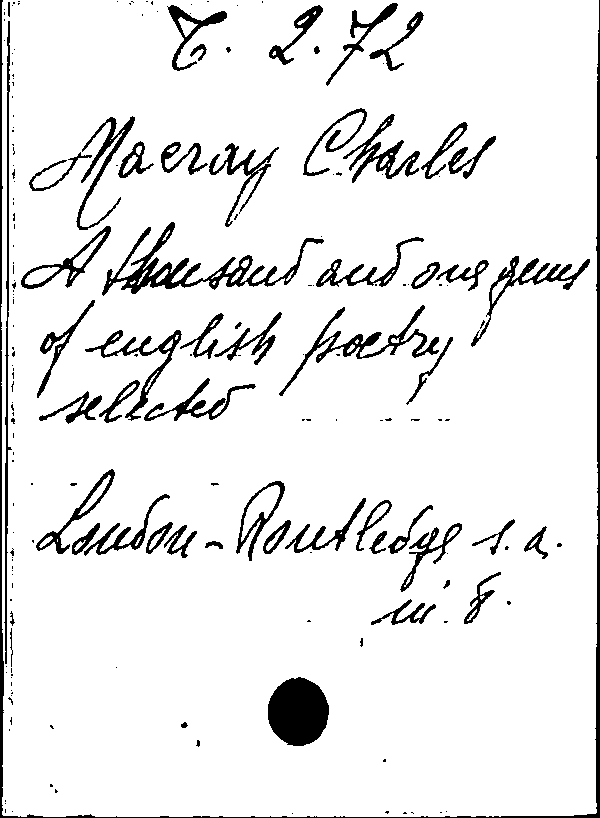 C. 2.72
Macray Charles
A thousand and one gems
of english poetry
selected
London - Routledge s.a.
in 8.